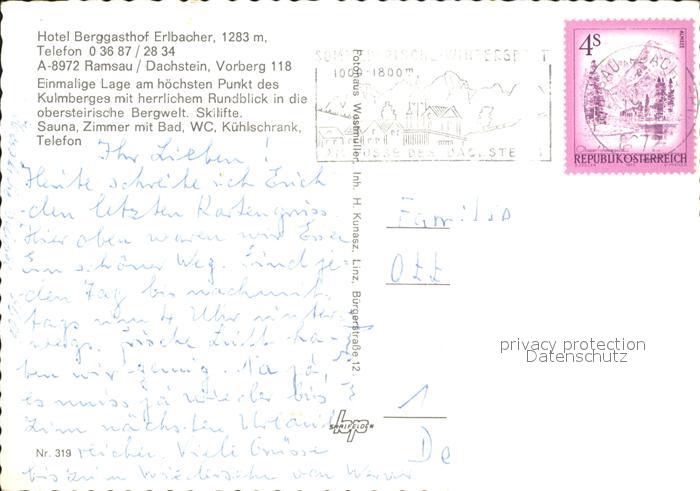 Hotel Berggasthof Erlbacher, 1283 m,
Telefon 0 36 87 / 28 34
A-8972 Ramsau / Dachstein, Vorberg 118
Einmalige Lage am höchsten Punkt des
Kulmberges mit herrlichem Rundblick in die
obersteirische Bergwelt. Skilifte.
Sauna, Zimmer mit Bad, WC, Kühlschrank,
Telefon
Ihr Lieben!
Heute schreibe ich Euch
den letzten Kartengruss.
Hier oben waren wir Essen
Ein schöner Weg. Sind je-
den Tag bis nachmit-
tags um 4 Uhr unter-
wegs. frische Luft ha-
ben wir genug. Na ja,
es muss ja wieder bis
zum nächsten Urlaub
reichen. Viele Grüsse
bis zum Wiedersehn von Werner
Nr. 319
Fotohaus Westmüller, Inh. H. Kunasz, Linz, Bürgerstraße 12
SAALFELDEN
1000-1800m
AM FUSSE DES DACHSTE
4S
ALMSEE
REPUBLIK ÖSTERREICH
Familie
Ott
privacy protection
Datenschutz
1
De